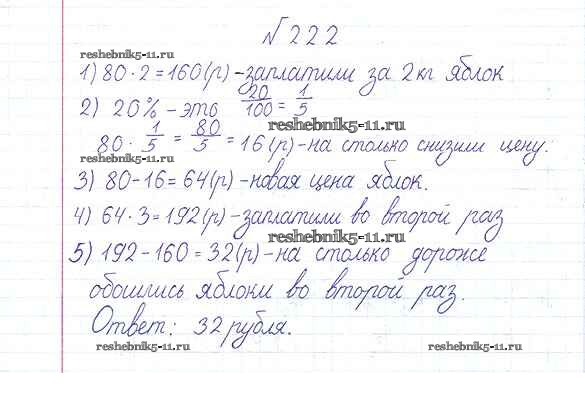 № 222
reshebnik5-11.ru
1) 80 · 2 = 160 (р) – заплатили за 2 кг яблок
2) 20% – это 20/100 = 1/5
reshebnik5-11.ru
80 · 1/5 = 80/5 = 16 (р) – на столько снизили цену.
3) 80 – 16 = 64 (р) – новая цена яблок.
4) 64 · 3 = 192 (р) – заплатили во второй раз
reshebnik5-11.ru
5) 192 – 160 = 32 (р) – на столько дороже
обошлись яблоки во второй раз.
Ответ: 32 рубля.
reshebnik5-11.ru
reshebnik5-11.ru